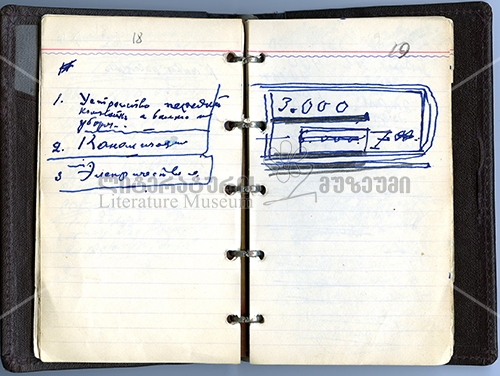 18
1. Устройство
комнаты а ванно
уборн..
2. Канализация
3 Электричество
19
3.000
ლიტერატურის მუზეუმი
Literature Museum